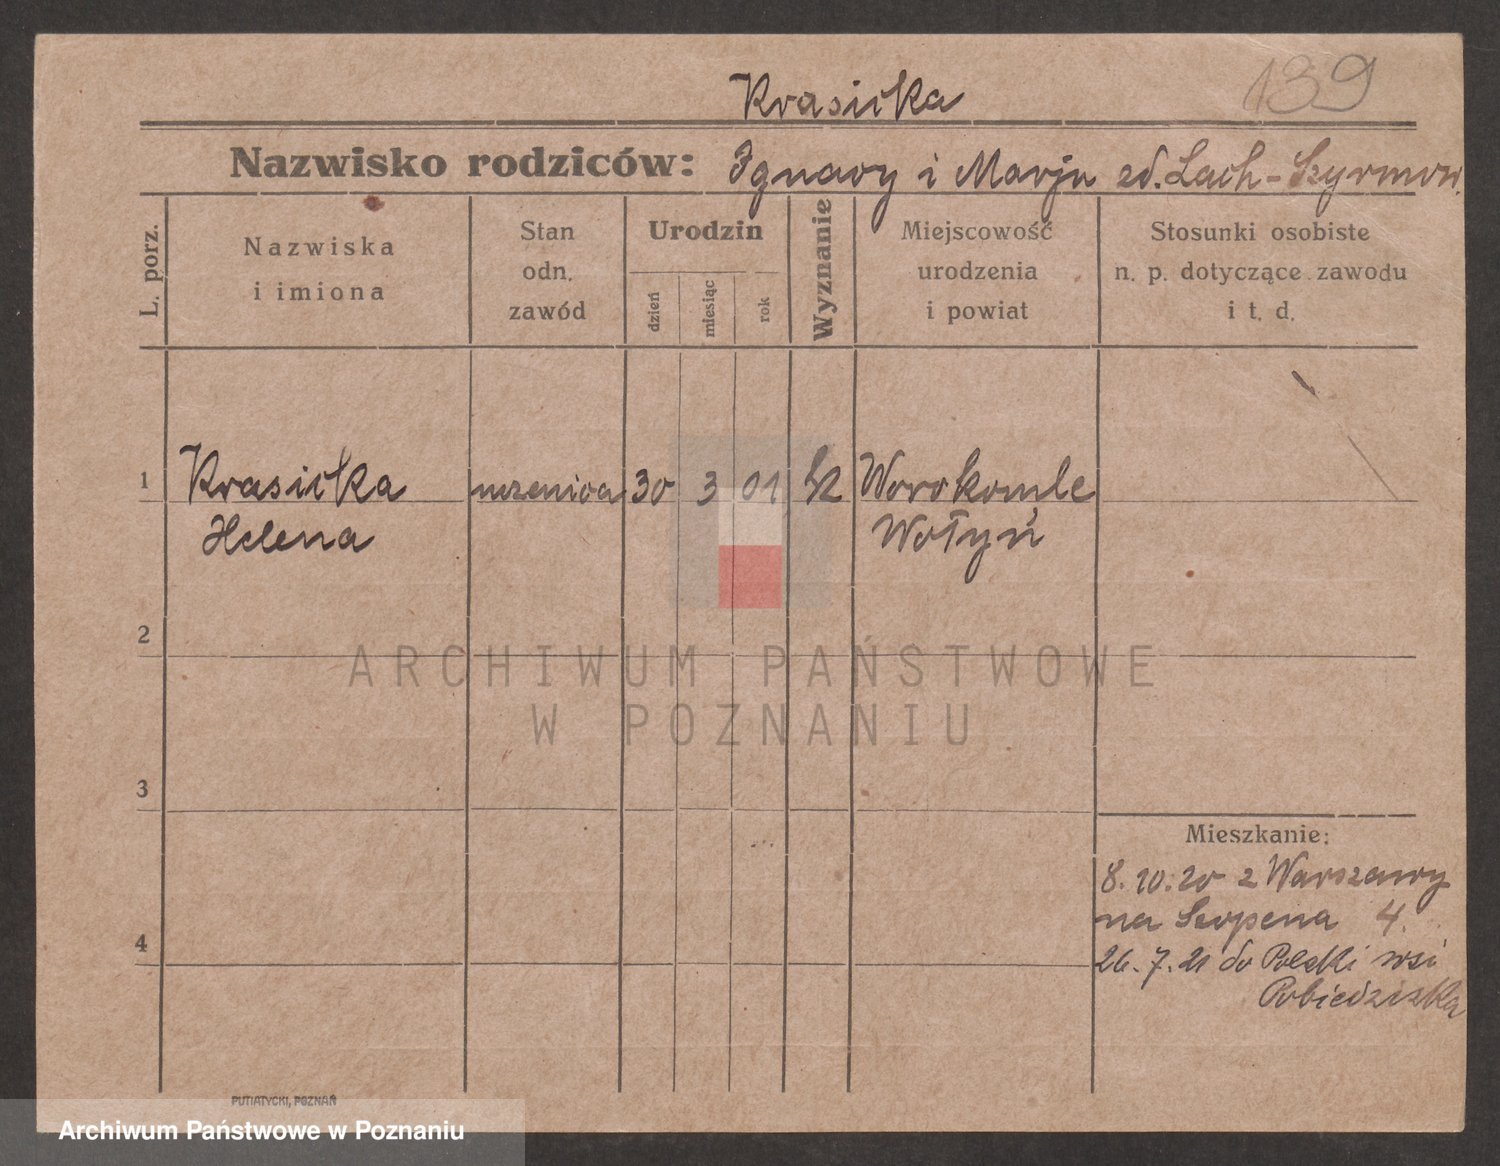 139
Krasicka
Nazwisko rodziców: Ignacy i Marja zd. Lach-Szyrmów
L. porz.
Nazwiska i imiona
Stan odn. zawód
Urodzin
dzień
miesiąc
rok
Wyznanie
Miejscowość urodzenia i powiat
Stosunki osobiste n. p. dotyczące zawodu i t. d.
1 Krasicka uczenica 30 3 01 Worokomle
Helena Wołyń
2
ARCHIWUM PAŃSTWOWE
W POZNANIU
3
Mieszkanie:
8.10.20 z Warszawy
na Szopena 4.
4
26.7.21 do wsi
Pobiedziska
PUTIATYCKI, POZNAŃ
Archiwum Państwowe w Poznaniu